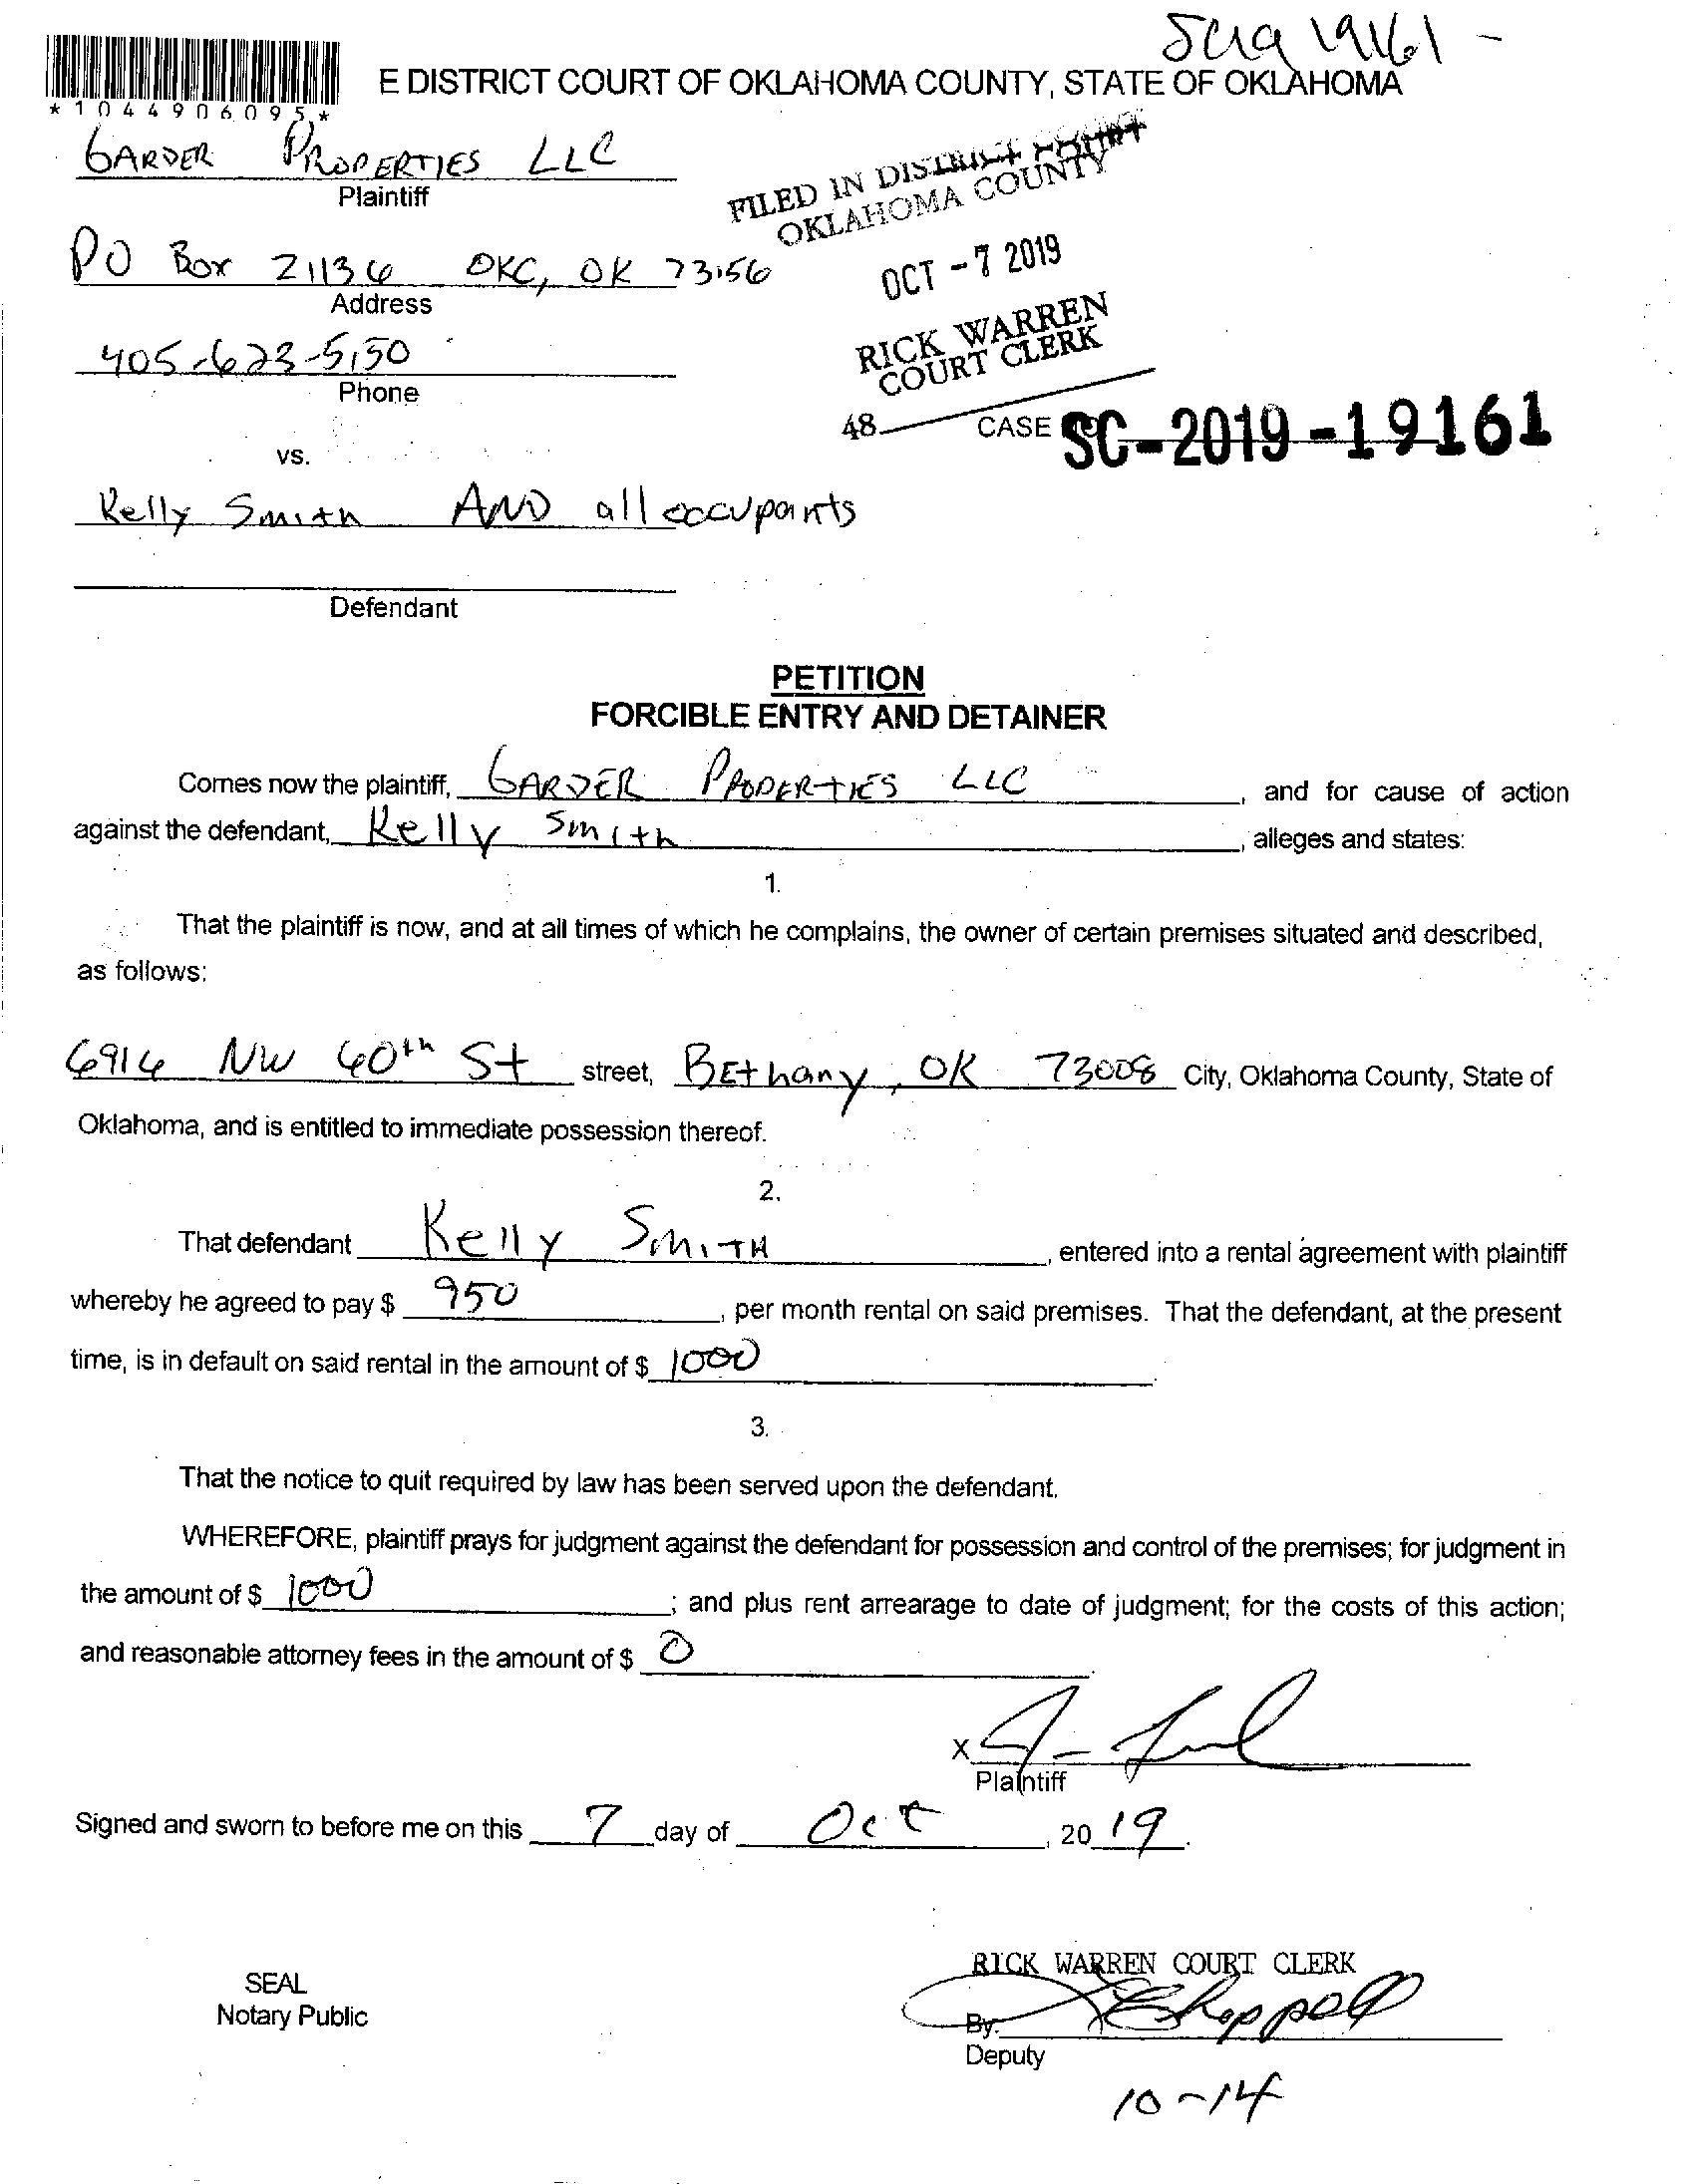 E DISTRICT COURT OF OKLAHOMA COUNTY, STATE OF OKLAHOMA
*1044906095*
GARDER PROPERTIES LLC
Plaintiff
FILED IN DISTRICT COURT
OKLAHOMA COUNTY
PO Box 21136 OKC, OK 73156
Address
OCT - 7 2019
405-623-5150
Phone
RICK WARREN
COURT CLERK
48
CASE SC-2019-19161
vs.
Kelly Smith AND all occupants
Defendant
PETITION
FORCIBLE ENTRY AND DETAINER
Comes now the plaintiff, GARDER PROPERTIES LLC, and for cause of action
against the defendant, Kelly Smith, alleges and states:
1.
That the plaintiff is now, and at all times of which he complains, the owner of certain premises situated and described,
as follows:
6916 NW 60th St street, BEthany, OK 73008 City, Oklahoma County, State of
Oklahoma, and is entitled to immediate possession thereof.
2.
That defendant Kelly SMITH, entered into a rental agreement with plaintiff
whereby he agreed to pay $ 950, per month rental on said premises. That the defendant, at the present
time, is in default on said rental in the amount of $ 1000.
3.
That the notice to quit required by law has been served upon the defendant.
WHEREFORE, plaintiff prays for judgment against the defendant for possession and control of the premises; for judgment in
the amount of $ 1000; and plus rent arrearage to date of judgment; for the costs of this action;
and reasonable attorney fees in the amount of $ 0.
X
Plaintiff
Signed and sworn to before me on this 7 day of Oct, 2019.
RICK WARREN COURT CLERK
SEAL
Notary Public
By:
Deputy
10-14